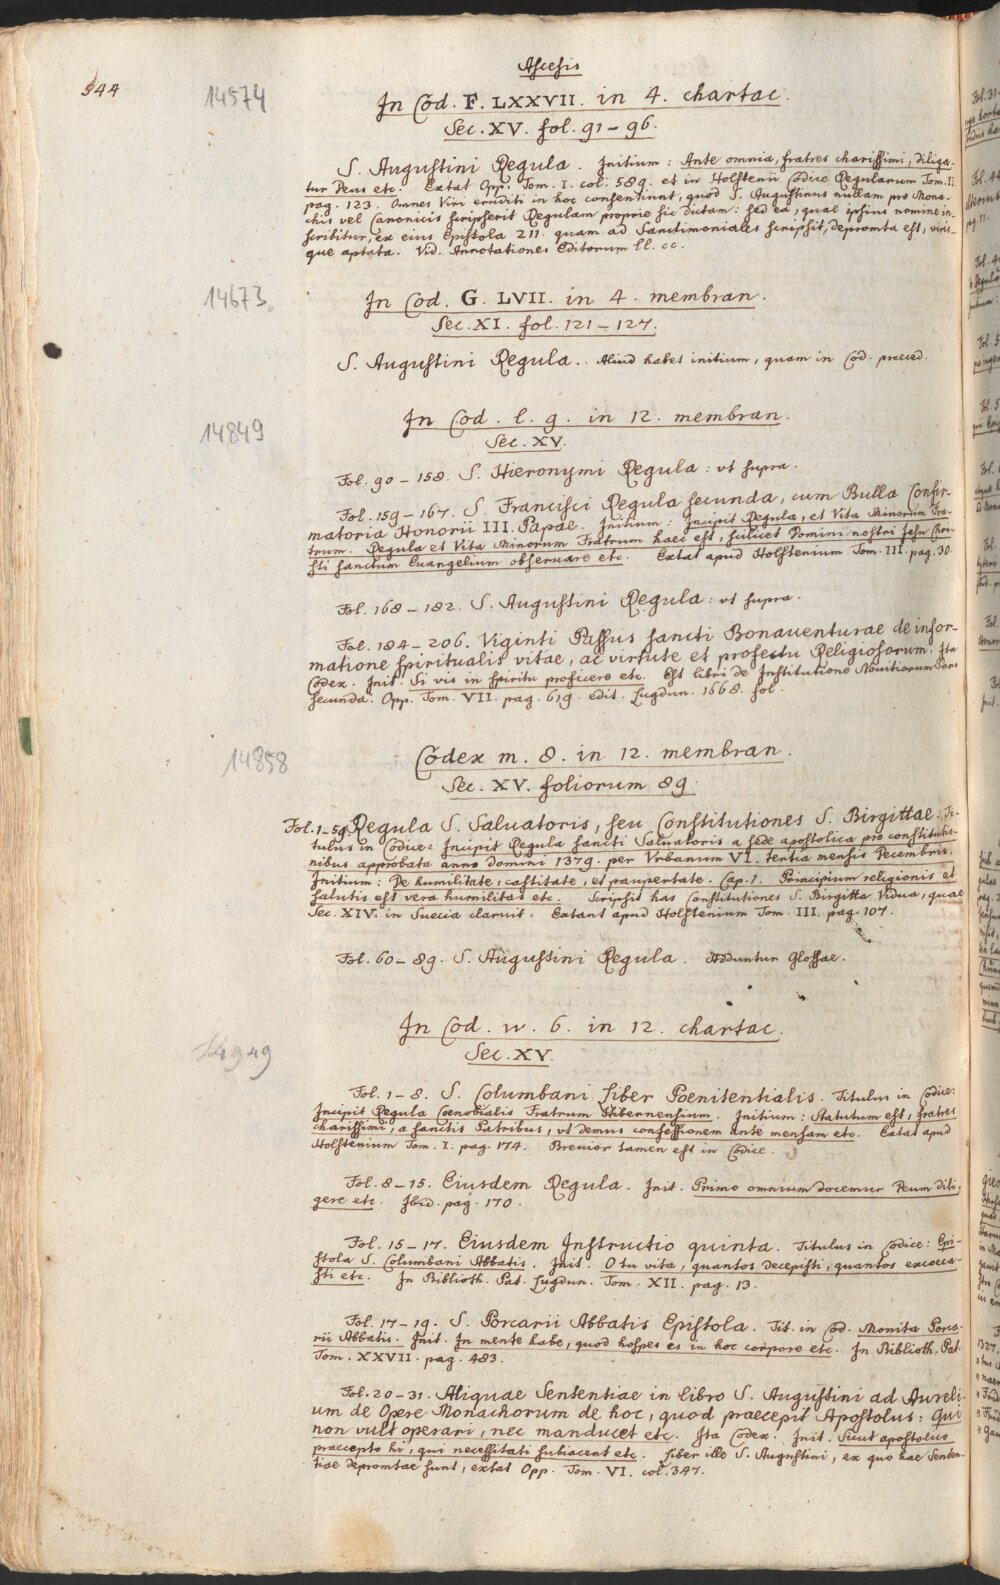 Ascesis
544
14574
In Cod. F. LXXVII. in 4. chartac.
Sec. XV. fol. 91-96.
S. Augustini Regula. Initium: Ante omnia, fratres charissimi, diliga-
tur Deus etc. Extat Opp. Tom. I. col. 589. et in Holstenii Codice Regularum Tom. II.
pag. 123. Omnes Viri eruditi in hoc consentiunt, quod S. Augustinus nullam pro Mona-
chis vel Canonicis scripserit Regulam proprie sic dictam: sed ea, quae ipsius nomine in-
scribitur, ex eius Epistola 211. quam ad Sanctimoniales scripsit, depromta est, viris-
que aptata. Vid. Annotationes Editorum ll. cc.
14673.
In Cod. G. LVII. in 4. membran.
Sec. XI. fol. 121-127.
S. Augustini Regula. Aliud habet initium, quam in Cod. praeced.
14849
In Cod. l. g. in 12. membran.
Sec. XV.
Fol. 90-158. S. Hieronymi Regula: vt supra.
Fol. 159-167. S. Francisci Regula secunda, cum Bulla Confir-
matoria Honorii III. Papae. Initium: Incipit Regula, et Vita Minorum Fra-
trum. Regula et Vita Minorum Fratrum haec est, scilicet Domini nostri Jesu Chri-
sti sanctum Euangelium obseruare etc. Extat apud Holstenium Tom. III. pag. 30.
Fol. 168-182. S. Augustini Regula: vt supra.
Fol. 184-206. Viginti Passus sancti Bonauenturae de infor-
matione spiritualis vitae, ac virtute et profectu Religiosorum. Ita
Codex. Init. Si vis in spiritu proficere etc. Est libri de Institutione Nouitiorum Pars
secunda. Opp. Tom. VII. pag. 619. edit. Lugdun. 1668. fol.
14858
Codex m. 8. in 12. membran.
Sec. XV. foliorum 89.
Fol. 1-59. Regula S. Saluatoris, seu Constitutiones S. Birgittae. Ti-
tulus in Codice: Incipit Regula sancti Saluatoris a sede apostolica pro constitutio-
nibus approbata anno domini 1379. per Vrbanum VI. tertia mensis Decembris.
Initium: De humilitate, castitate, et paupertate. Cap. 1. Principium religionis et
salutis est vera humilitas etc. Scripsit has Constitutiones S. Birgitta Vidua, quae
Sec. XIV. in Suecia claruit. Extant apud Holstenium Tom. III. pag. 107.
Fol. 60-89. S. Augustini Regula. Adduntur Glossae.
14949
In Cod. w. 6. in 12. chartac.
Sec. XV.
Fol. 1-8. S. Columbani Liber Poenitentialis. Titulus in Codice:
Incipit Regula Coenobialis Fratrum Hibernensium. Initium: Statutum est, fratres
charissimi, a sanctis Patribus, vt demus confessionem ante mensam etc. Extat apud
Holstenium Tom. I. pag. 174. Breuior tamen est in Codice.
Fol. 8-15. Eiusdem Regula. Init. Primo omnium docemur Deum dili-
gere etc. Ibid. pag. 170.
Fol. 15-17. Eiusdem Instructio quinta. Titulus in Codice: Epi-
stola S. Columbani Abbatis. Init. O tu vita, quantos decepisti, quantos excoeca-
sti etc. In Biblioth. Pat. Lugdun. Tom. XII. pag. 13.
Fol. 17-19. S. Porcarii Abbatis Epistola. Tit. in Cod. Monita Porca-
rii Abbatis. Init. In mente habe, quod hospes es in hoc corpore etc. In Biblioth. Pat.
Tom. XXVII. pag. 483.
Fol. 20-31. Aliquae Sententiae in libro S. Augustini ad Aureli-
um de Opere Monachorum de hoc, quod praecepit Apostolus: Qui
non vult operari, nec manducet etc. Ita Codex. Init. Sicut apostolico
praecepto hi, qui necessitati subiacent etc. Liber ille S. Augustini, ex quo hae Senten-
tiae depromtae sunt, extat Opp. Tom. VI. col. 347.